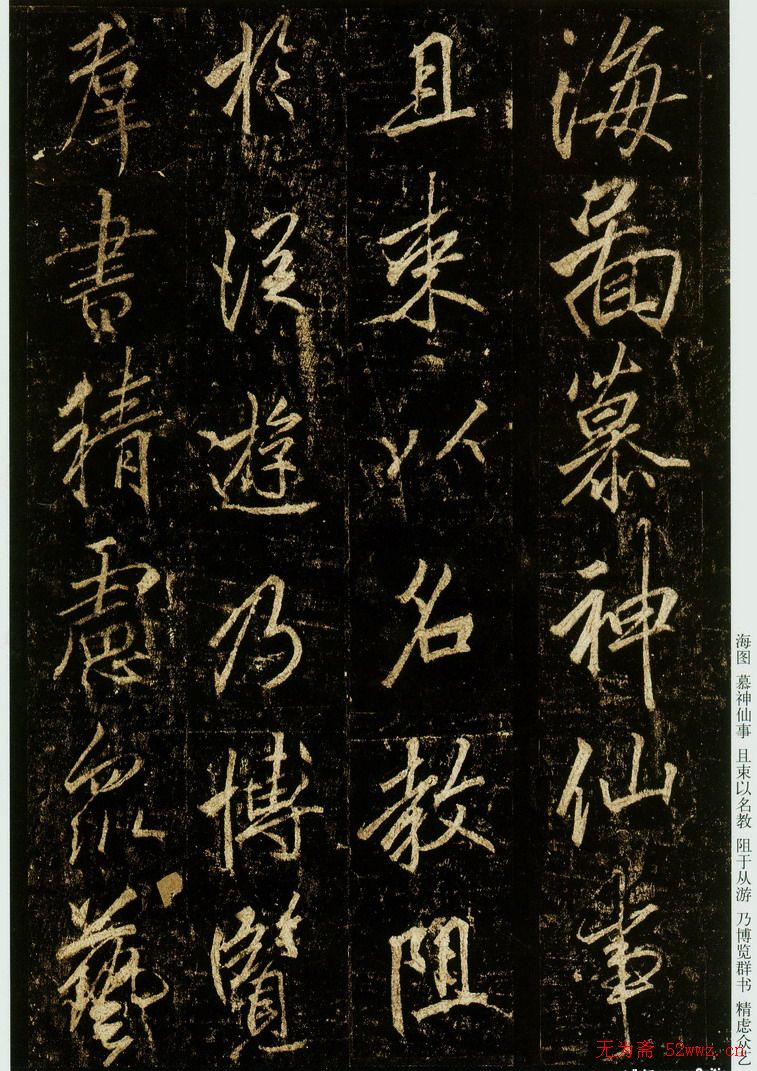 海圖慕神仙事
且束以名教阻
於從遊乃博覽
羣書精慮眾藝
海图 慕神仙事 且束以名教 阻于从游 乃博览群书 精虑众艺
无为斋 52wwz.cn